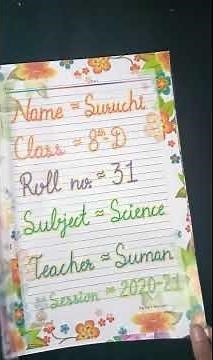 Name = Suruchi
Class = 8th-D
Roll no = 31
Subject = Science
Teacher = Suman
Session = 2020-21